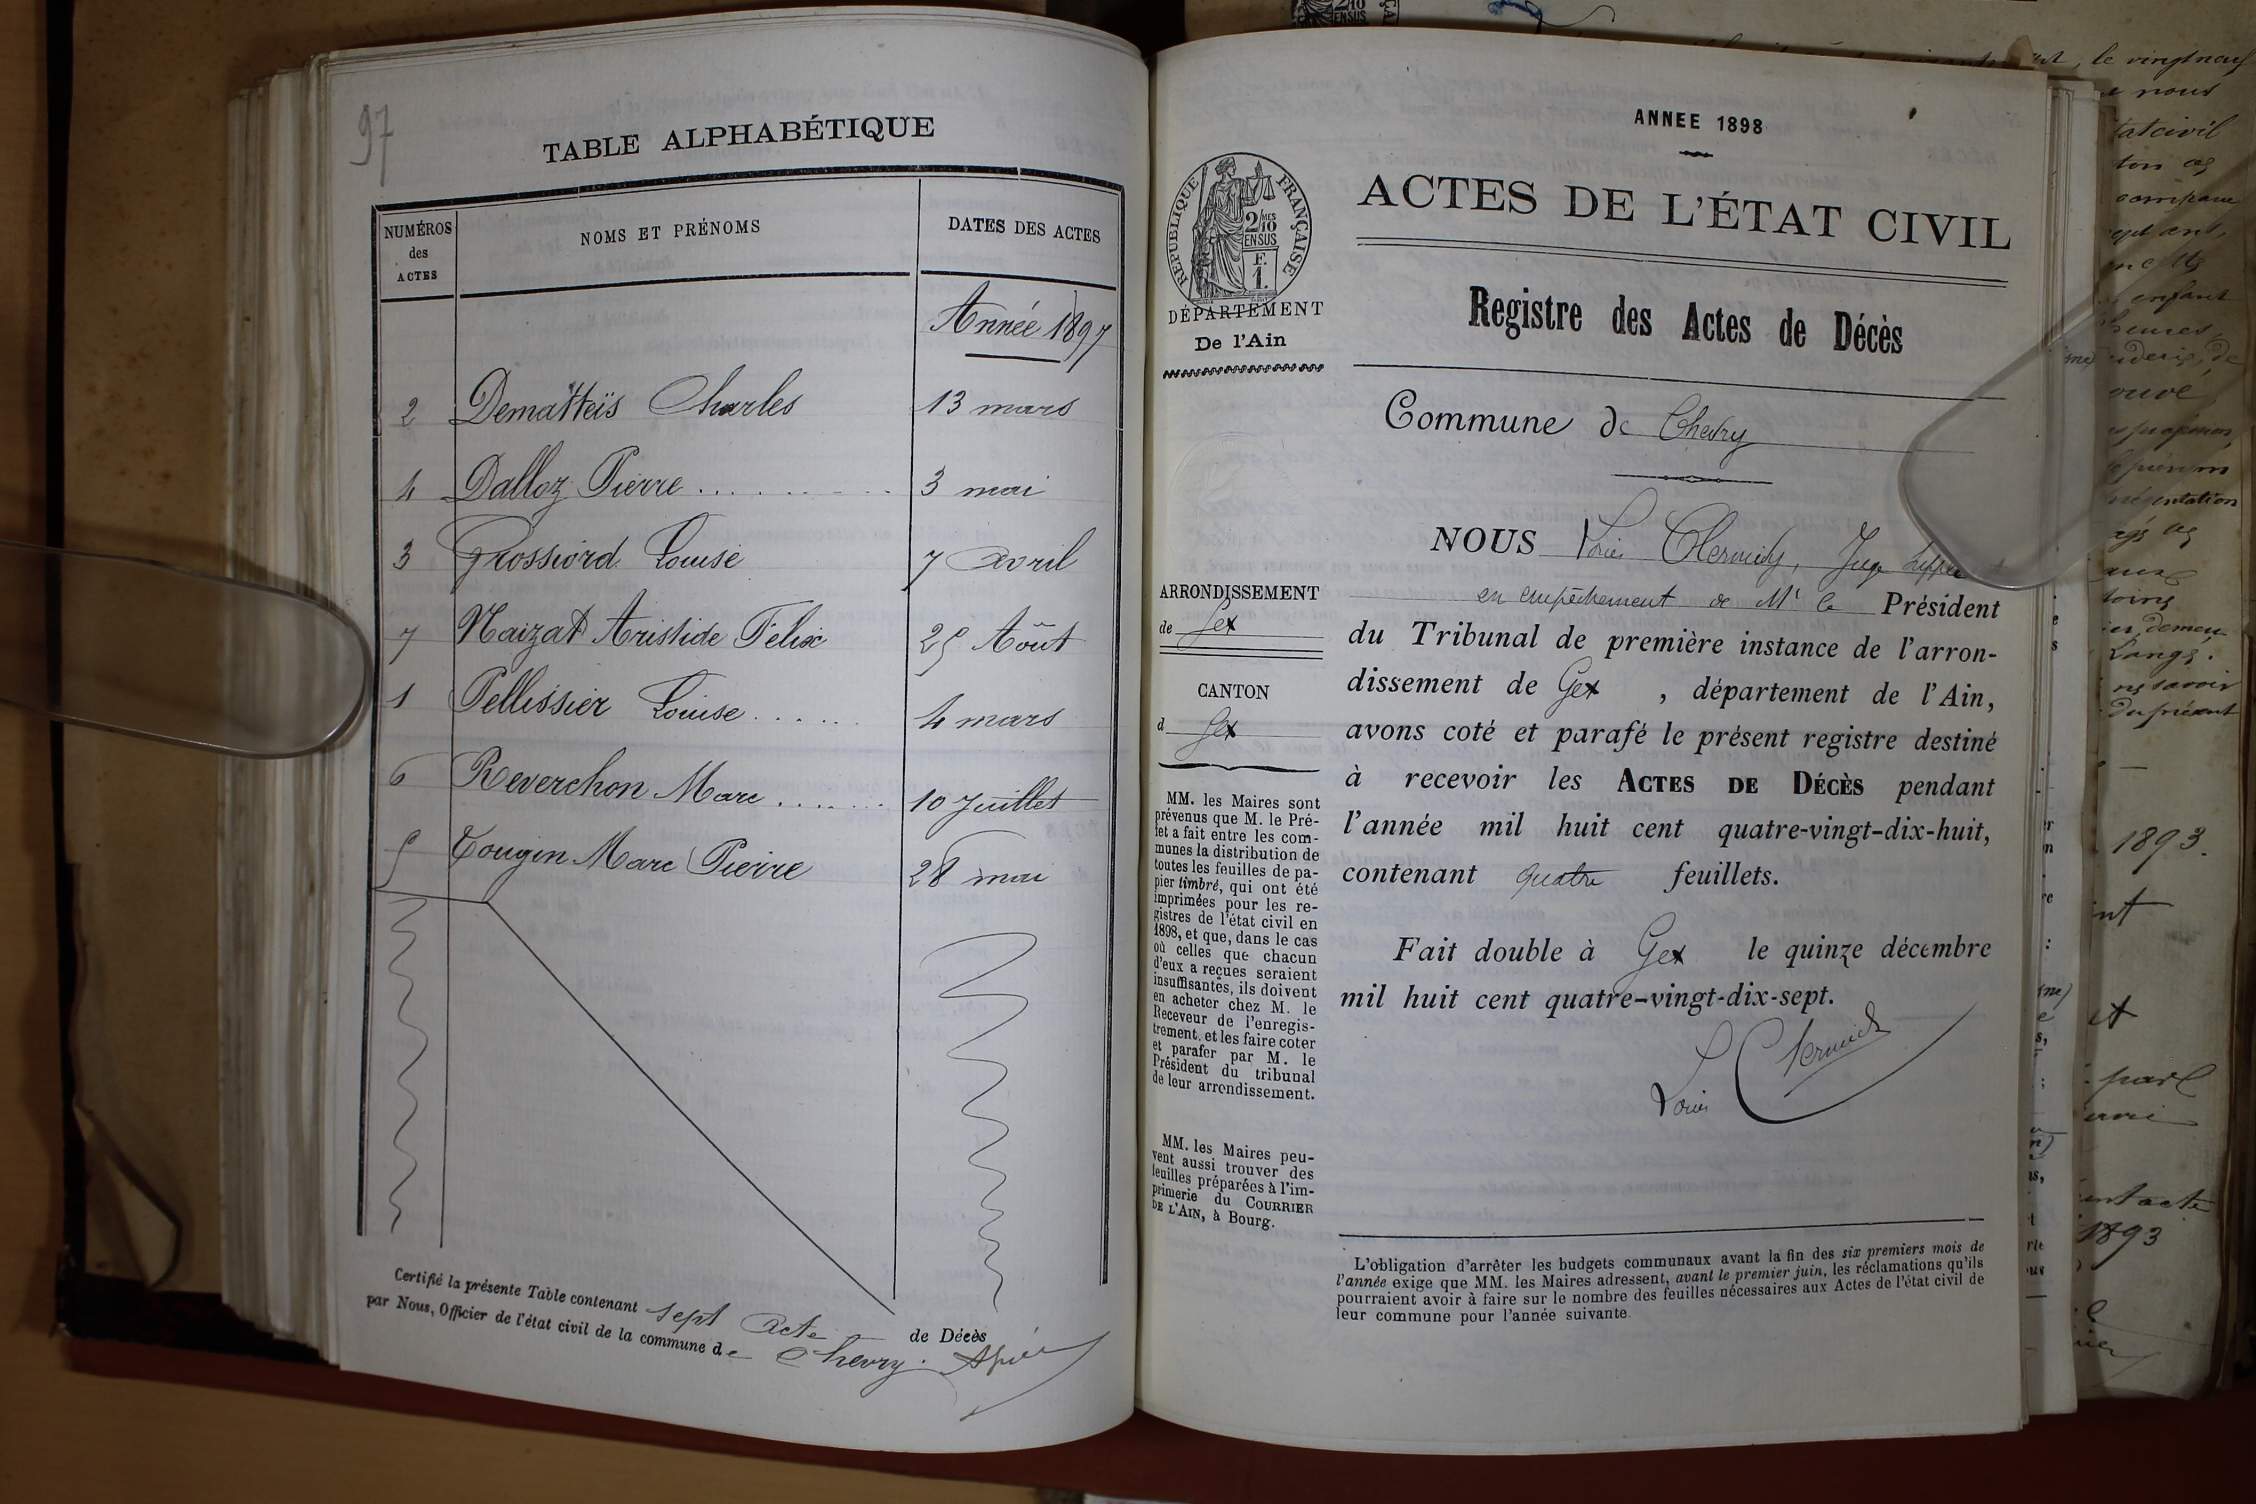 97
TABLE ALPHABÉTIQUE
NUMÉROS des ACTES
NOMS ET PRÉNOMS
DATES DES ACTES
Année 1897
2 Dematteïs Charles 13 mars
4 Dalloz Pierre . . . . . . . . . 3 mai
3 Grossiord Louise 7 avril
7 Naizat Aristide Félix 25 Août
1 Pellissier Louise . . . . . . 4 mars
6 Reverchon Marc . . . . . . . 10 Juillet
5 Tougin Marc Pierre 28 mai
Certifié la présente Table contenant sept Acte de Décès
par Nous, Officier de l'état civil de la commune de Chevry.
ANNEE 1898
RÉPUBLIQUE FRANÇAISE
2/10 MES
EN SUS
F.
1.
ACTES DE L'ÉTAT CIVIL
DÉPARTEMENT
De l'Ain
Registre des Actes de Décès
Commune de Chevry
NOUS Louis Clermidy, Juge
en empêchement de Mr le Président
du Tribunal de première instance de l'arron-
dissement de Gex , département de l'Ain,
avons coté et parafé le présent registre destiné
à recevoir les ACTES DE DÉCÈS pendant
l'année mil huit cent quatre-vingt-dix-huit,
contenant quatre feuillets.
Fait double à Gex le quinze décembre
mil huit cent quatre-vingt-dix-sept.
Louis Clermidy
ARRONDISSEMENT
de Gex
CANTON
d Gex
MM. les Maires sont
prévenus que M. le Pré-
fet a fait entre les com-
munes la distribution de
toutes les feuilles de pa-
pier timbré, qui ont été
imprimées pour les re-
gistres de l'état civil en
1898, et que, dans le cas
où celles que chacun
d'eux a reçues seraient
insuffisantes, ils doivent
en acheter chez M. le
Receveur de l'enregis-
trement, et les faire coter
et parafer par M. le
Président du tribunal
de leur arrondissement.
MM. les Maires peu-
vent aussi trouver des
feuilles préparées à l'im-
primerie du COURRIER
DE L'AIN, à Bourg.
L'obligation d'arrêter les budgets communaux avant la fin des six premiers mois de
l'année exige que MM. les Maires adressent, avant le premier juin, les réclamations qu'ils
pourraient avoir à faire sur le nombre des feuilles nécessaires aux Actes de l'état civil de
leur commune pour l'année suivante.
le vingt neuf
nous
enfant
1893.
1893